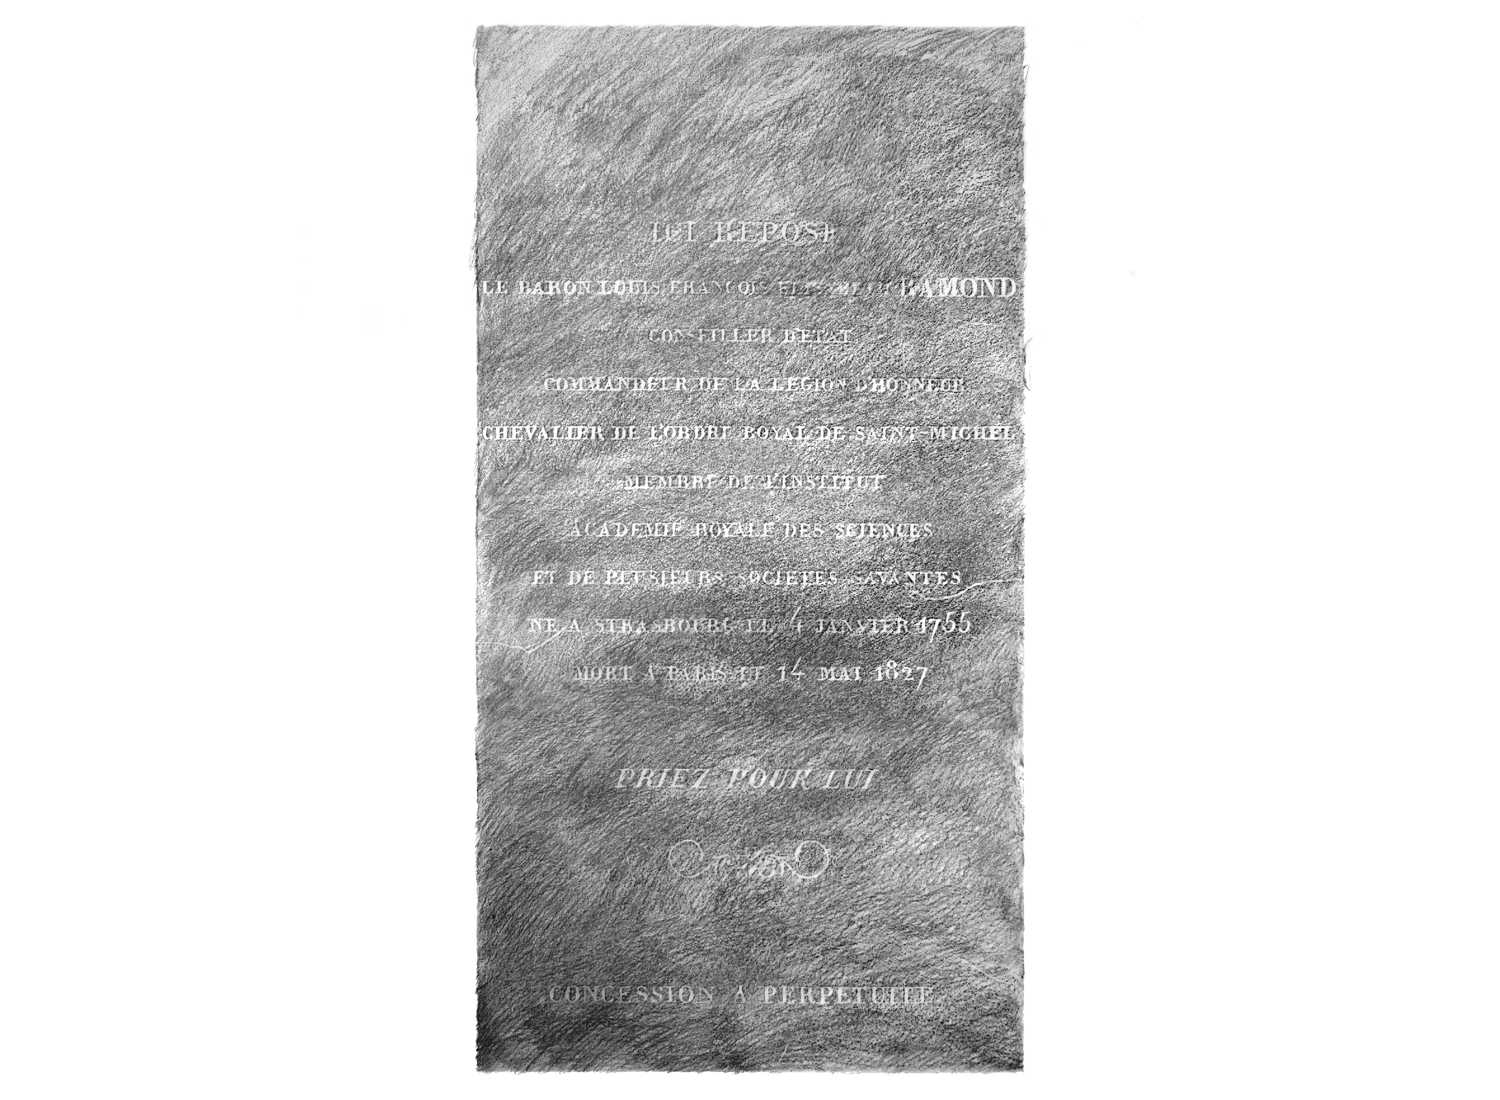 ICI REPOSE
LE BARON LOUIS FRANÇOIS ELISABETH RAMOND
CONSEILLER D'ETAT
COMMANDEUR DE LA LEGION D'HONNEUR
CHEVALIER DE L'ORDRE ROYAL DE SAINT-MICHEL
MEMBRE DE L'INSTITUT
ACADEMIE ROYALE DES SCIENCES
ET DE PLUSIEURS SOCIETES SAVANTES
NE A STRASBOURG LE 4 JANVIER 1755
MORT A PARIS LE 14 MAI 1827
PRIEZ POUR LUI
CONCESSION A PERPETUITE